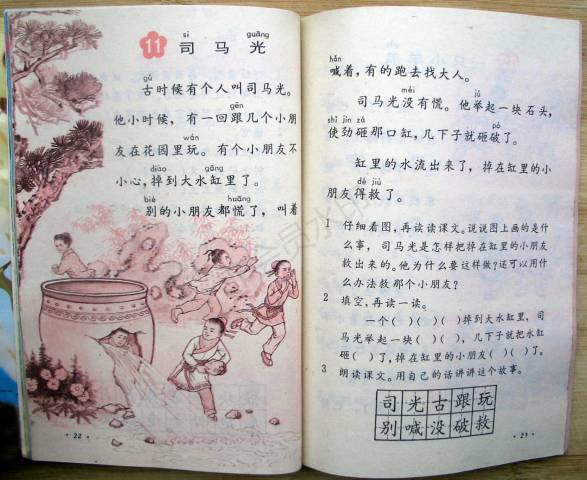 sī guāng
11 司马光
gǔ
古时候有个人叫司马光。
gēn
他小时候，有一回跟几个小朋
wán
友在花园里玩。有个小朋友不
diào gāng
小心，掉到大水缸里了。
bié huāng
别的小朋友都慌了，叫着
· 22 ·
hǎn
喊着，有的跑去找大人。
méi jǔ
司马光没有慌。他举起一块石头，
shǐ jìn zá pò
使劲砸那口缸，几下子就砸破了。
缸里的水流出来了，掉在缸里的小
dé jiù
朋友得救了。
1 仔细看图，再读读课文。说说图上画的是什
么事，司马光是怎样把掉在缸里的小朋友
救出来的。他为什么要这样做？还可以用什
么办法救那个小朋友？
2 填空，再读一读。
一个( )( )( )掉到大水缸里，司
马光举起一块( )( )，几下子就把水缸
砸( )了，掉在缸里的小朋友( )( )了。
3 朗读课文。用自己的话讲讲这个故事。
司光古跟玩
别喊没破救
· 23 ·